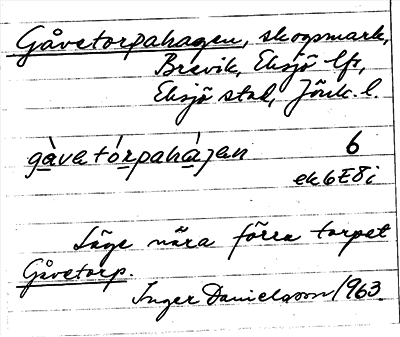 Gåvetorpahagen, skogsmark,
Brevik, Eksjö lfs,
Eksjö stad, Jönk. l.
gàvetórpahàgen 6
ek 6E8i
Läge nära förra torpet
Gåvetorp.
Inger Danielsson 1963